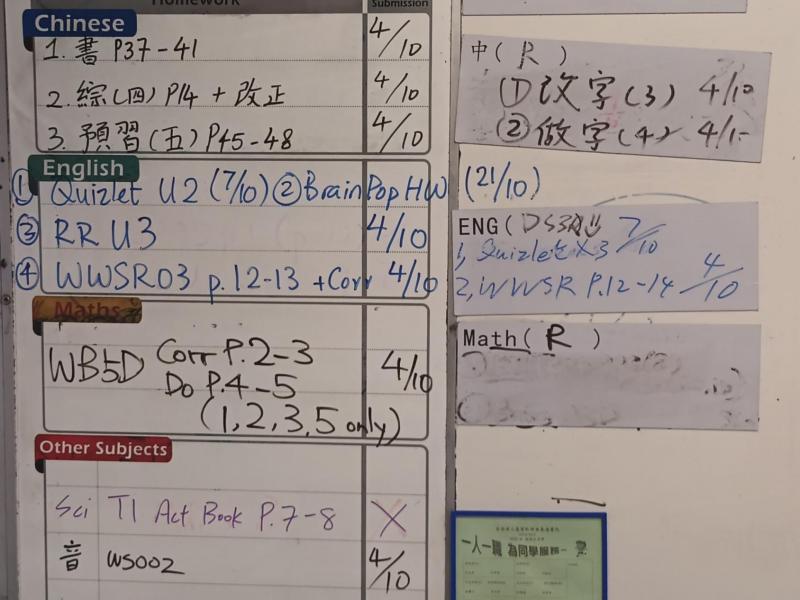 Homework
Submission
Chinese
1. 書 P37-41 4/10
2. 綜(四) P14 + 改正 4/10
3. 預習(五) P45-48 4/10
English
① Quizlet U2 (7/10) ② BrainPop HW (21/10)
③ RR U3 4/10
④ WWSR03 p.12-13 +Corr 4/10
Maths
WB5D Corr P.2-3 4/10
Do P.4-5
(1,2,3,5 only)
Other Subjects
Sci T1 Act Book P.7-8 X
音 WS002 4/10
中( R )
① 改字(3) 4/10
② 做字(4) 4/1
ENG(
1, Quizlet X3 7/10
2, WWSR P.12-14 4/10
Math( R )
一人一職 為同學服務